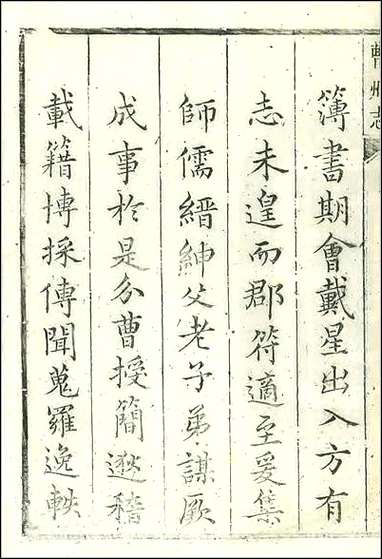 曹州志
簿書期會戴星出入方有
志未遑而郡符適至爰集
師儒縉紳父老子弟謀厥
成事於是分曹授簡遐稽
載籍博採傳聞蒐羅逸軼